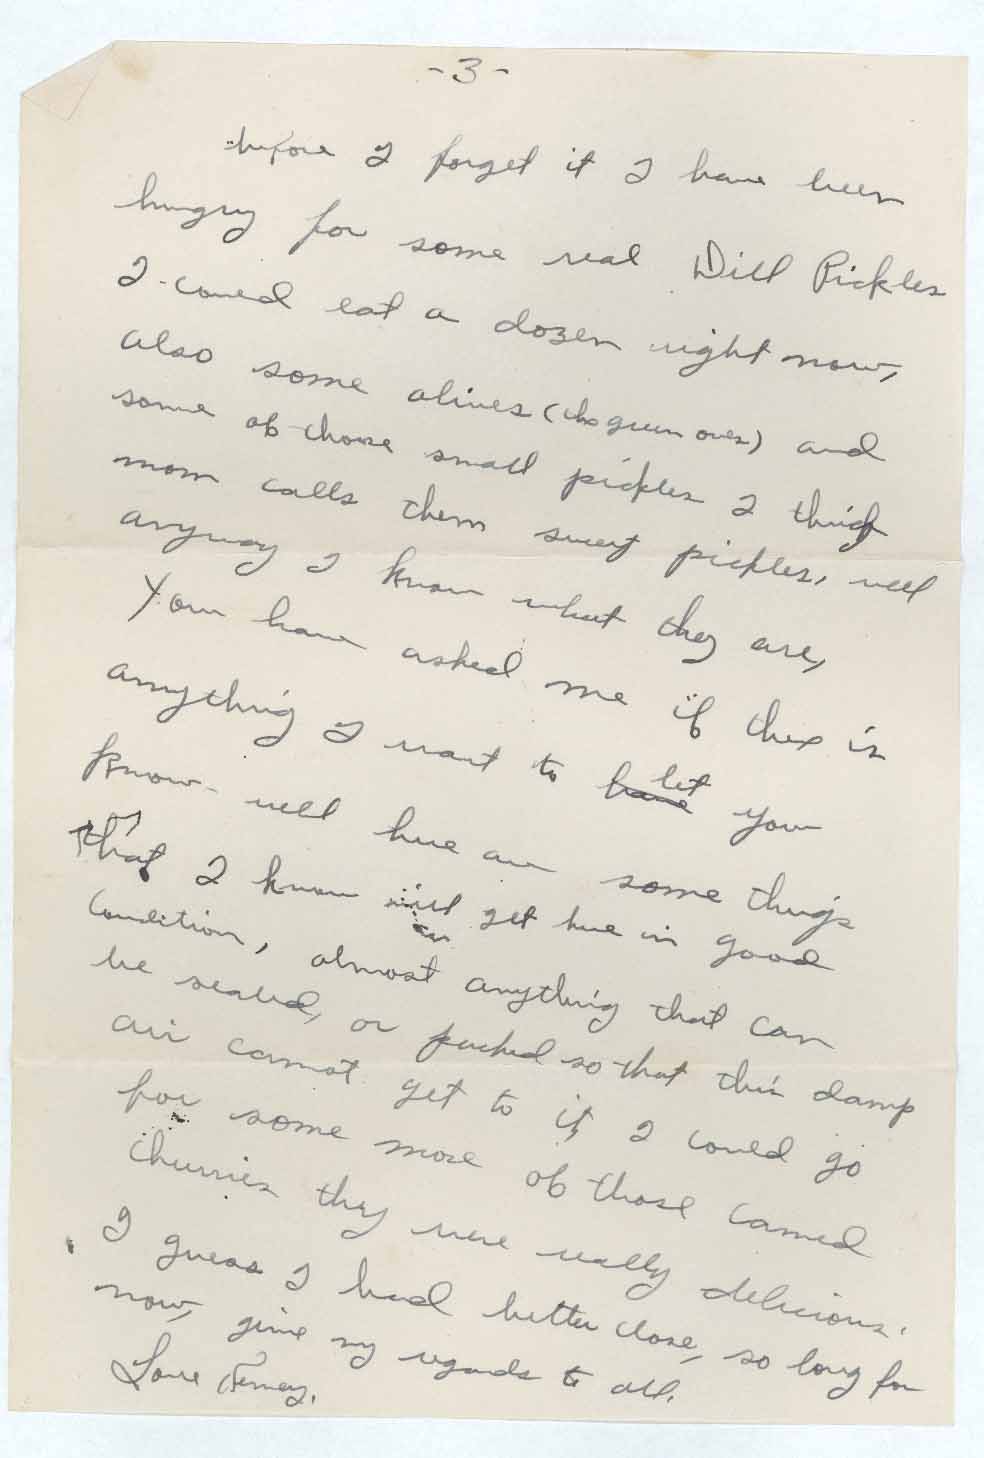 -3-
before I forget it I have been
hungry for some real Dill Pickles
I could eat a dozen right now,
also some olives (the green ones) and
some of those small pickles I think
mom calls them sweet pickles, well
anyway I know what they are,
You have asked me if there is
anything I want to have let you
know - well here are some things
that I know will get here in good
condition, almost anything that can
be sealed, or packed so that this damp
air cannot get to it, I could go
for some more of those canned
cherries they were really delicious.
I guess I had better close, so long for
now, give my regards to all.
Love